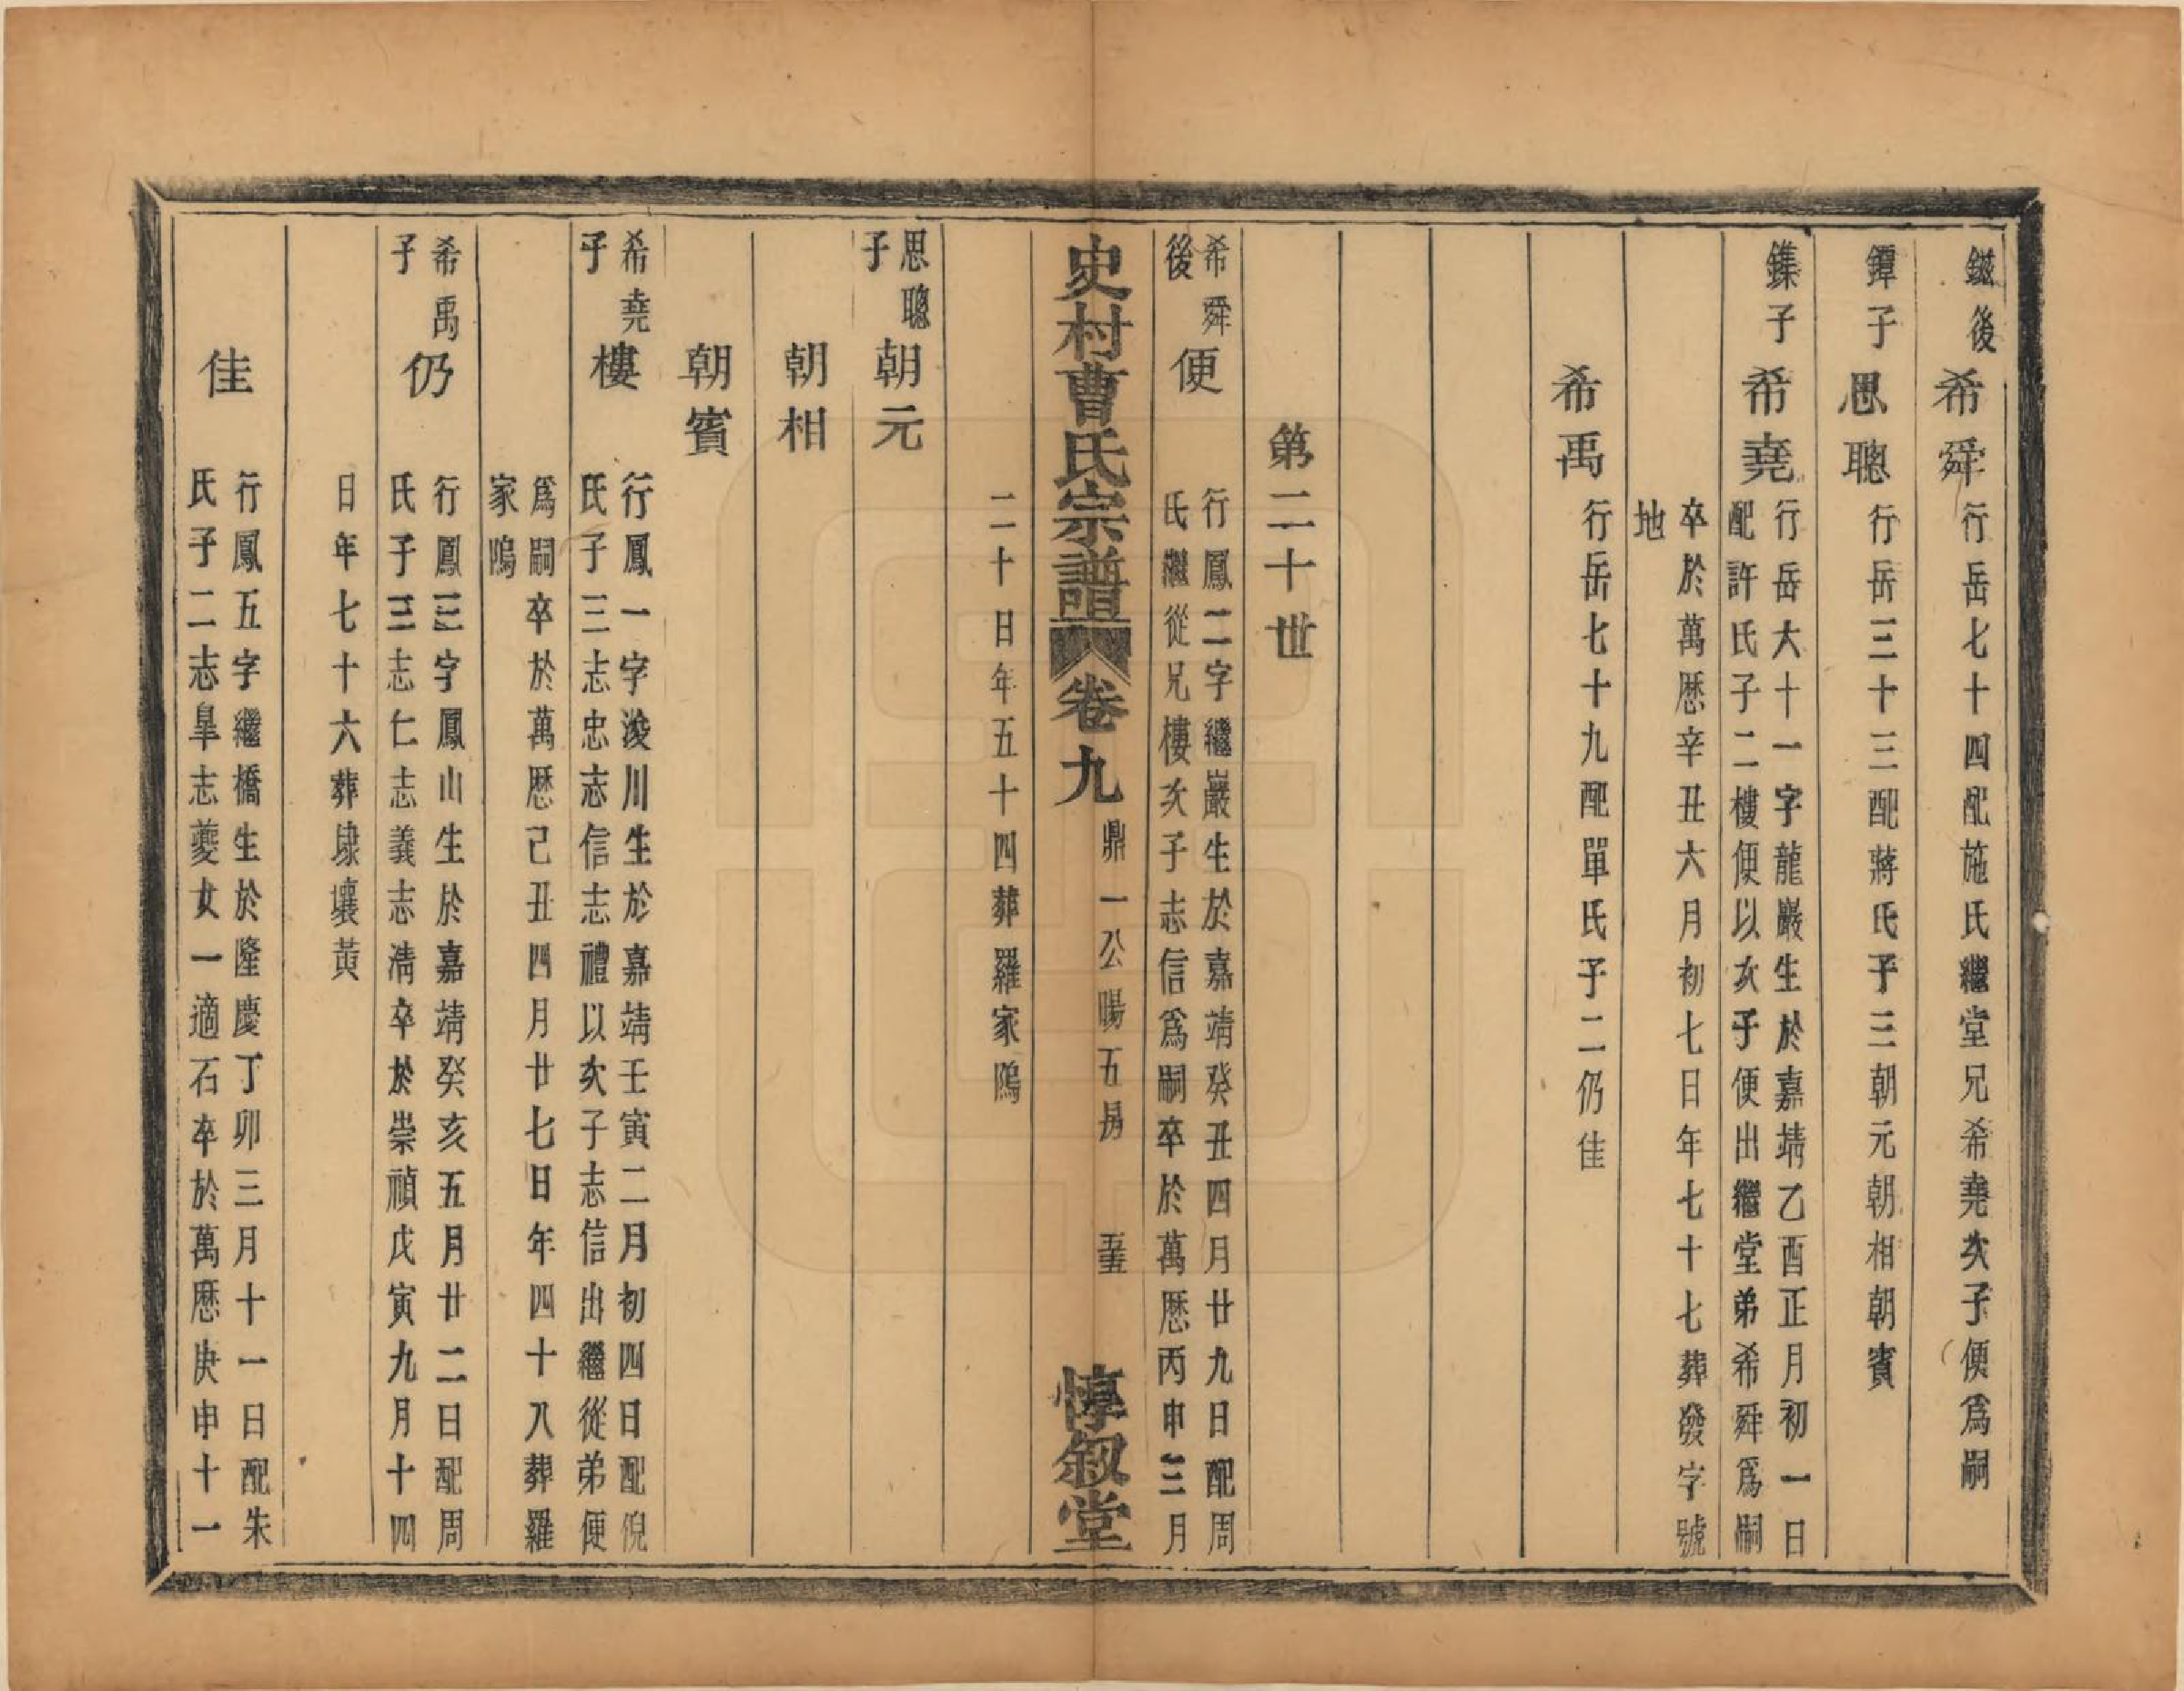 鎡後
希舜
行岳七十四配施氏繼堂兄希堯次子便爲嗣
鐔子
思聰
行岳三十三配蔣氏子三朝元朝相朝賓
鏶子
希堯
行岳大十一字龍巖生於嘉靖乙酉正月初一日
配許氏子二樓便以次子便出繼堂弟希舜爲嗣
卒於萬歷辛丑六月初七日年七十七葬發字號
地
希禹
行岳七十九配單氏子二仍佳
第二十世
希舜
後
便
行鳳二字繼巖生於嘉靖癸丑四月廿九日配周
氏繼從兄樓次子志信爲嗣卒於萬歷丙申三月
史村曹氏宗譜 卷九
鼎一公暘五房
五
惇敘堂
二十日年五十四葬羅家隖
思聰
子
朝元
朝相
朝賓
希堯
子
樓
行鳳一字浚川生於嘉靖壬寅二月初四日配倪
氏子三志忠志信志禮以次子志信出繼從弟便
爲嗣卒於萬歷己丑四月廿七日年四十八葬羅
家隖
希禹
子
仍
行鳳三字鳳山生於嘉靖癸亥五月廿二日配周
氏子三志仁志義志淸卒於崇禎戊寅九月十四
日年七十六葬埭壤黃
佳
行鳳五字繼橋生於隆慶丁卯三月十一日配朱
氏子二志臯志夔女一適石卒於萬歷庚申十一